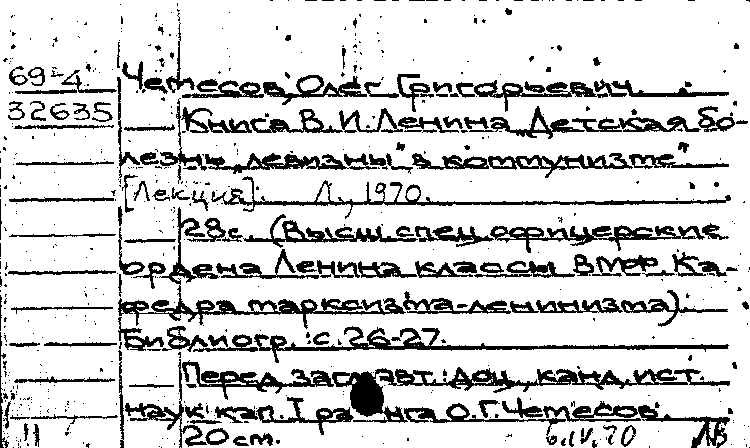 69-4 Четесов, Олег Григорьевич.
32635 Книга В. И. Ленина „Детская бо-
лезнь „левизны" в коммунизме".
[Лекция]. Л., 1970.
28с. (Высш. спец. офицерские
ордена Ленина классы ВМФ. Ка-
федра марксизма-ленинизма).
Библиогр.: с. 26-27.
Перед загл. авт.: доц., канд. ист.
наук кап. I ранга О.Г. Четесов.
11 20 см. 6.IV.70 ЛВ